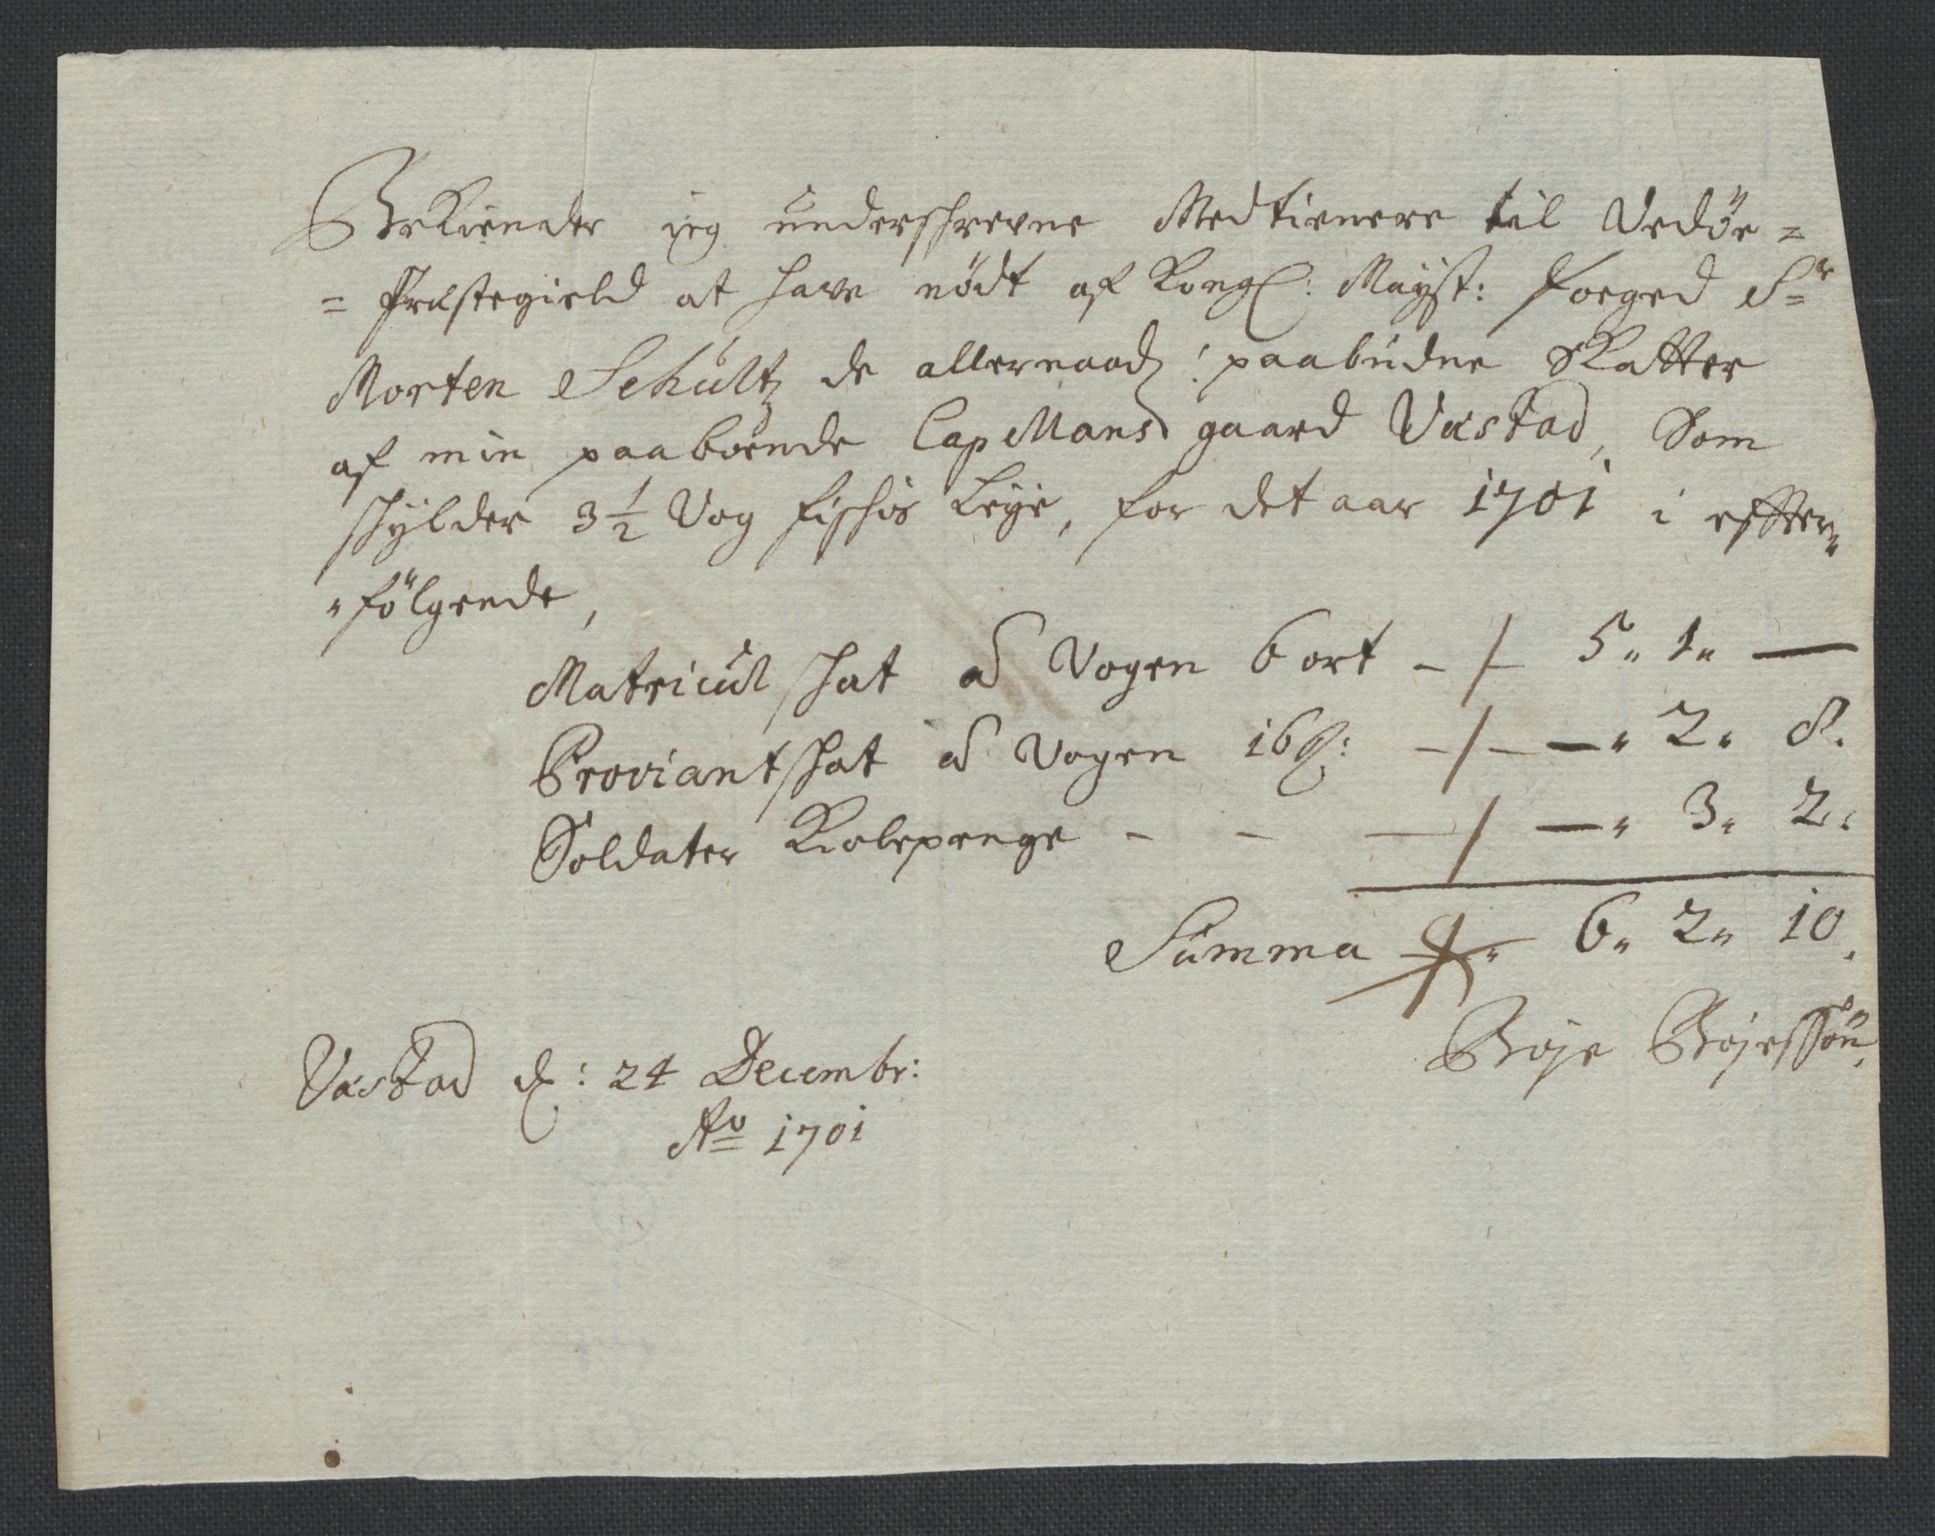 Bekiender ieg underschrevne Medtienere til Vedøe=
=Præstegield at have nödt af Kongl: Mayst: Foeged Sr
Morten Schultz de allernaad: paabudne Skatter
af min paaboende CapMans gaard Væstad, Som
schylder 3 1/2 Vog fischis Leye, for det aar 1701 i effter„
„fölgende,
Matricul schat à Vogen 6 ort - / - 5„ 1„ —
Proviantschat à Vogen 16 ß: - / - —„ 2„ 8.
Soldater Kiolepenge - - - / —„ 3„ 2„
Summa „ 6„ 2„ 10.
Boje Bojessön,
Væstad d: 24 Decembr:
Ao 1701